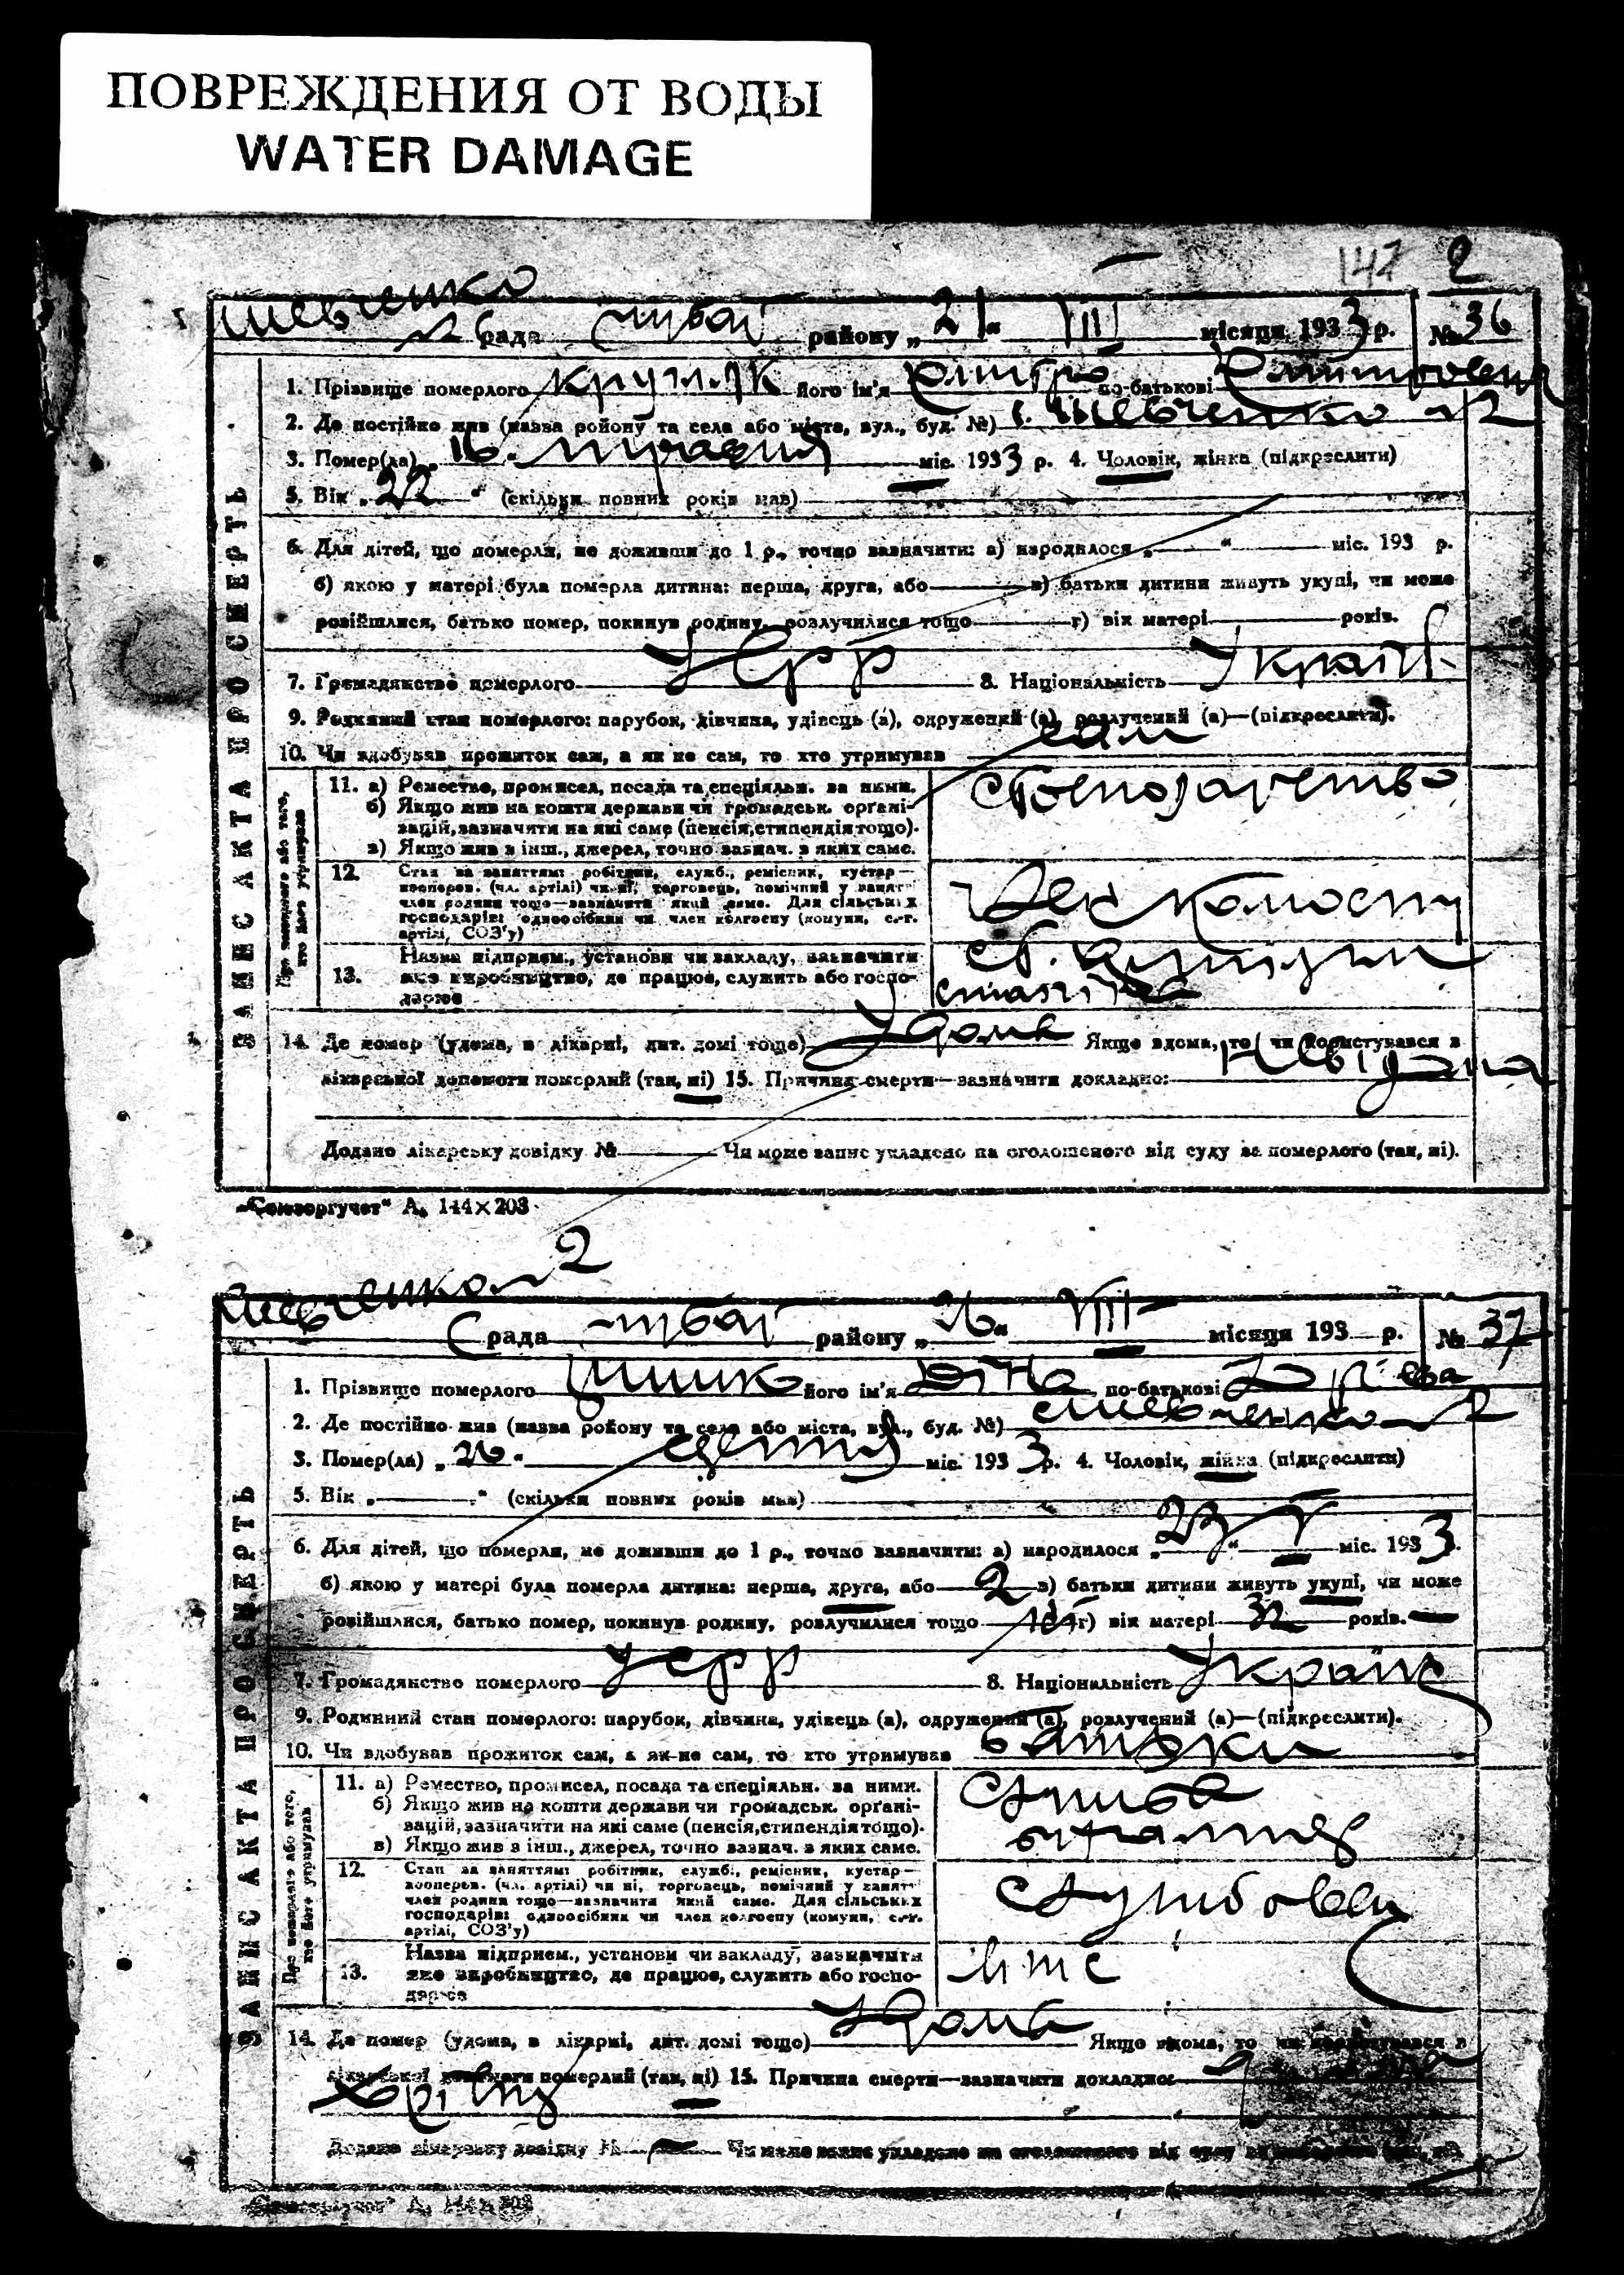 ПОВРЕЖДЕНИЯ ОТ ВОДЫ
WATER DAMAGE
147 2
Шевченко
рада району „21“ VIII місяця 1933 р. № 36
ЗАПИС АКТА ПРО СМЕРТЬ
1. Прізвище померлого його ім'я Дмитро по-батькові Дмитрович
2. Де постійно жив (назва ройону та села або міста, вул., буд. №) с. Шевченко №2
3. Помер(ла) „16. травня міс. 1933 р. 4. Чоловік, жінка (підкреслити)
5. Вік „22“ (скільки повних років мав)
6. Для дітей, що померли, не доживши до 1 р., точно зазначити: а) народилося „ “ міс. 193 р.
б) якою у матері була померла дитина: перша, друга, або в) батьки дитини живуть укупі, чи може
розійшлися, батько помер, покинув родину, розлучилися тощо г) вік матері років.
7. Громадянство померлого УСРР 8. Національність Україн.
9. Родинний стан померлого: парубок, дівчина, удівець (а), одружений (а), розлучений (а)—(підкреслити).
10. Чи здобував прожиток сам, а як не сам, то хто утримував сам
Про померлого або того, хто його утримував
11. а) Ремество, промисел, посада та спеціяльн. за ними.
б) Якщо жив на кошти держави чи громадськ. орґані-
зацій, зазначити на які саме (пенсія, стипендія тощо).
в) Якщо жив з інш., джерел, точно зазнач. з яких саме.
Сгосподарство
12. Стан за заняттям: робітник, служб., ремісник, кустар—
кооперов. (чл. артілі) чи ні, торговець, помічний у занятті
член родини тощо—зазначити який саме. Для сільських
господарів: одноосібник чи член колгоспу (комуни, с.-г.
артілі, СОЗ'у)
Член колгоспу
13. Назва підприєм., установи чи закладу, зазначити
яке виробництво, де працює, служить або госпо-
дарює
14. Де помер (удома, в лікарні, дит. домі тощо) Удома Якщо вдома, то чи користувався з
лікарської допомоги померлий (так, ні) 15. Причина смерти—зазначити докладно: Невідома
Додано лікарську довідку № Чи може запис укладено на оголошеного від суду за померлого (так, ні).
„Союзоргучет“ А. 144×203
Шевченко №2
рада району „26“ VIII місяця 193 р. № 37
ЗАПИС АКТА ПРО СМЕРТЬ
1. Прізвище померлого його ім'я по-батькові
2. Де постійно жив (назва ройону та села або міста, вул., буд. №) с. Шевченко №2
3. Помер(ла) „26. серпня міс. 1933 р. 4. Чоловік, жінка (підкреслити)
5. Вік „ “ (скільки повних років мав)
6. Для дітей, що померли, не доживши до 1 р., точно зазначити: а) народилося „23“ V міс. 1933 р.
б) якою у матері була померла дитина: перша, друга, або 2 в) батьки дитини живуть укупі, чи може
розійшлися, батько помер, покинув родину, розлучилися тощо г) вік матері 32 років.
7. Громадянство померлого УСРР 8. Національність Україн
9. Родинний стан померлого: парубок, дівчина, удівець (а), одружений (а), розлучений (а)—(підкреслити).
10. Чи здобував прожиток сам, а як не сам, то хто утримував батьки
Про померлого або того, хто його утримував
11. а) Ремество, промисел, посада та спеціяльн. за ними.
б) Якщо жив на кошти держави чи громадськ. орґані-
зацій, зазначити на які саме (пенсія, стипендія тощо).
в) Якщо жив з інш., джерел, точно зазнач. з яких саме.
Служба
12. Стан за заняттям: робітник, службі, ремісник, кустар—
кооперов. (чл. артілі) чи ні, торговець, помічний у занятті
член родини тощо—зазначити який саме. Для сільських
господарів: одноосібник чи член колгоспу (комуни, с.-г.
артілі, СОЗ'у)
Службовець
13. Назва підприєм., установи чи закладу, зазначити
яке виробництво, де працює, служить або госпо-
дарює
МТС
14. Де помер (удома, в лікарні, дит. домі тощо) Удома Якщо вдома, то чи користувався з
лікарської допомоги померлий (так, ні) 15. Причина смерти—зазначити докладно:
Додано лікарську довідку № Чи може запис укладено на оголошеного від суду за померлого (так, ні).
„Союзоргучет“ А. 144×203